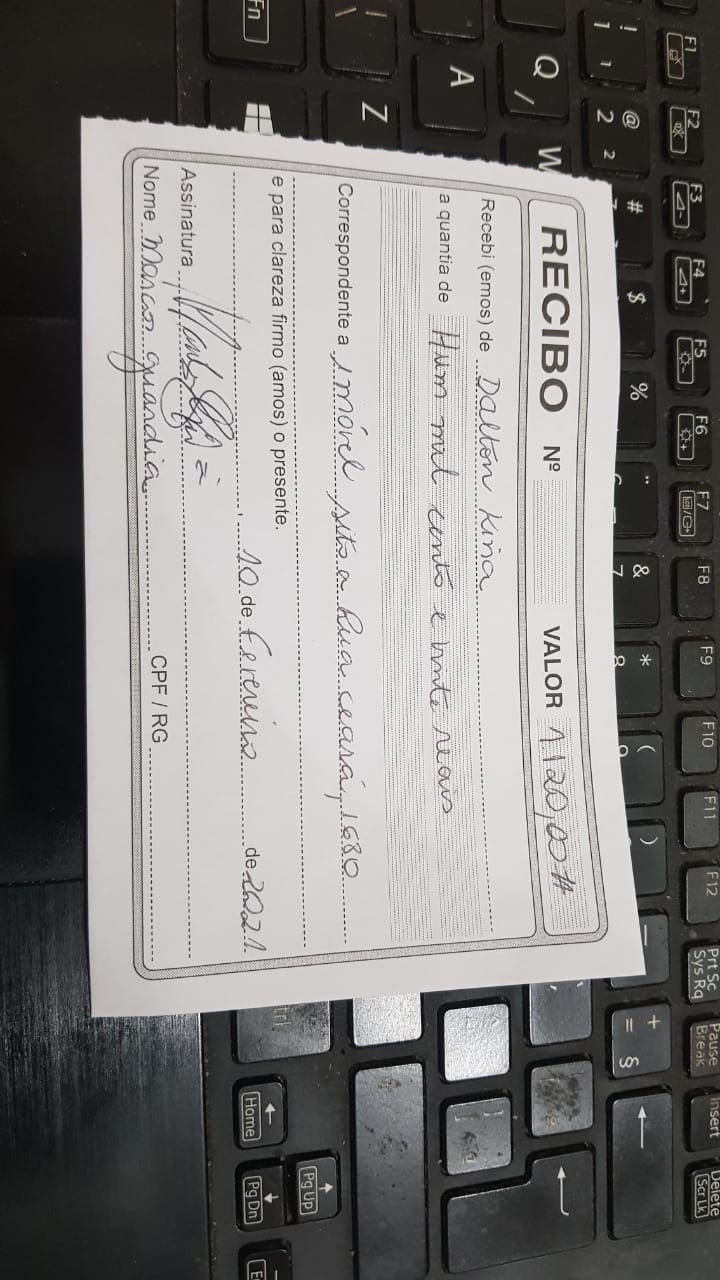 RECIBO Nº VALOR 1.120,00#
Recebi (emos) de Dalton Kina
a quantia de Hum mil cento e vinte reais
Correspondente a imóvel sito a Rua Ceará, 1680
e para clareza firmo (amos) o presente.
10 de Fevereiro de 2021.
Assinatura
Nome Marcos guardia CPF / RG
F1
F2
F3
F4
F5
F6
F7
F8
F9
F10
F11
F12
Prt Sc
Sys Rq
Pause
Break
Insert
Delete
ScrLk
! 1 1
@ 2 2
#
$
%
¨
& 7
* 8
( 9
)
+ = §
Q /
W
A
Z
| \
Fn
Home
Pg Up
Pg Dn